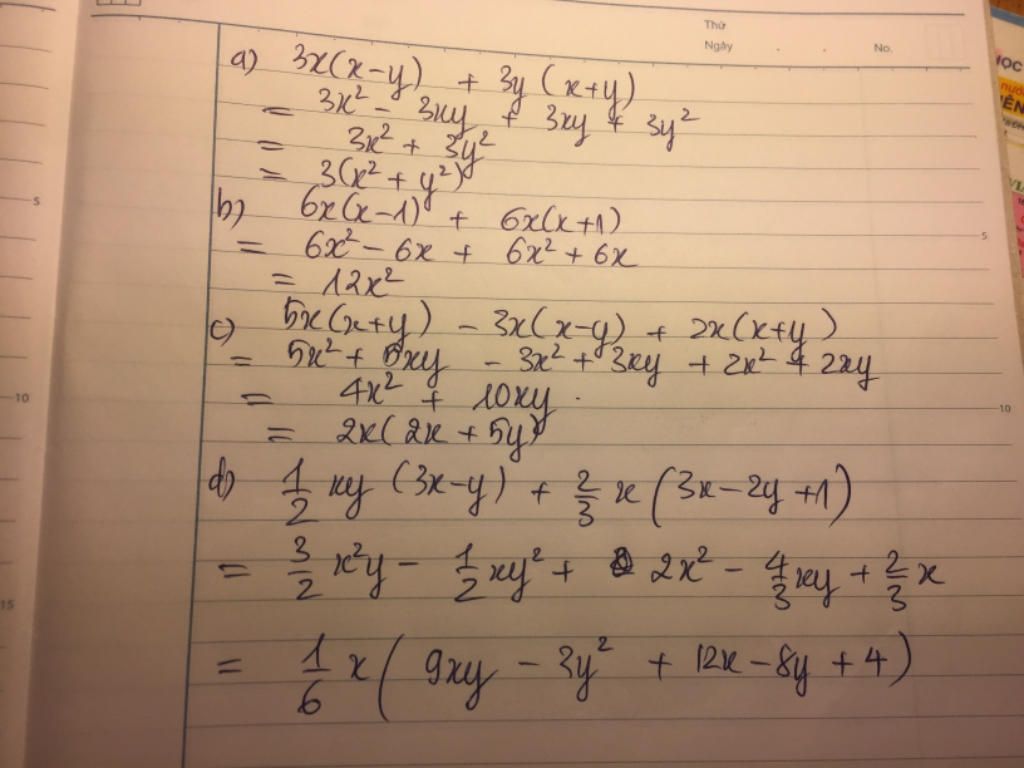 Thứ
Ngày . . No.
a) 3x(x-y) + 3y(x+y)
= 3x² - 3xy + 3xy + 3y²
= 3x² + 3y²
= 3(x² + y²)
b) 6x(x-1) + 6x(x+1)
= 6x² - 6x + 6x² + 6x
= 12x²
c) 5x(x+y) - 3x(x-y) + 2x(x+y)
= 5x² + 5xy - 3x² + 3xy + 2x² + 2xy
= 4x² + 10xy.
= 2x(2x + 5y)
d) 1/2 xy (3x-y) + 2/3 x (3x-2y+1)
= 3/2 x²y - 1/2 xy² + 2x² - 4/3 xy + 2/3 x
= 1/6 x (9xy - 3y² + 12x - 8y + 4)
5
10
15
5
10